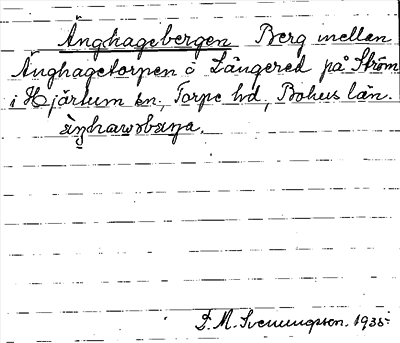 Änghagebergen Berg mellan
Änghagetorpen o Långered på Ström
i Hjärtum sn, Torpe hd, Bohus län.
D. M. Svenungsson. 1935.